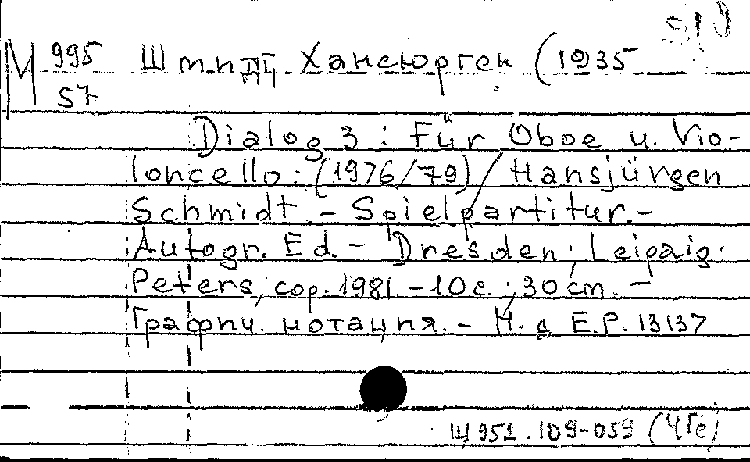 М 995 Шмидт, Хансюрген (1935
57
Dialog 3 : Für Oboe u. Vio-
loncello : (1976/79) / Hansjürgen
Schmidt. - Spielpartitur. -
Autogr. Ed. - Dresden ; Leipzig :
Peters, cop. 1981. - 10 с. ; 30 cm. -
Графич. нотация. - Н. д. E.P. 13137
Щ951.109-059 (4Ге)